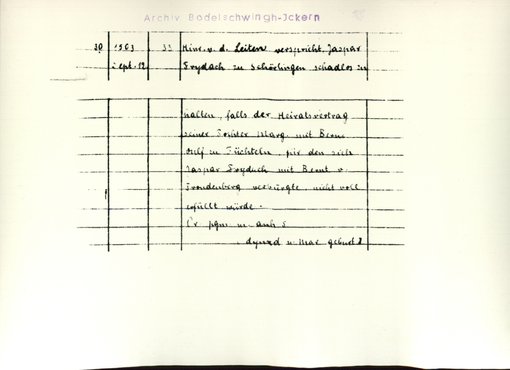 Archiv Bodelschwingh-Ickern
30 1503 33 Hinr. v. d. Leiten verspricht Jaspar
Sept. 12 Frydach zu Schörlingen schadlos zu
halten, falls der Heiratsvertrag
seiner Tochter Marg. mit Bernt
in Füchteln, für den sich
Jaspar Frydach mit Bernt v.
verbürgte, nicht voll
erfüllt würde.
Or pgm m. anh S
dynxd n. Mar geburt